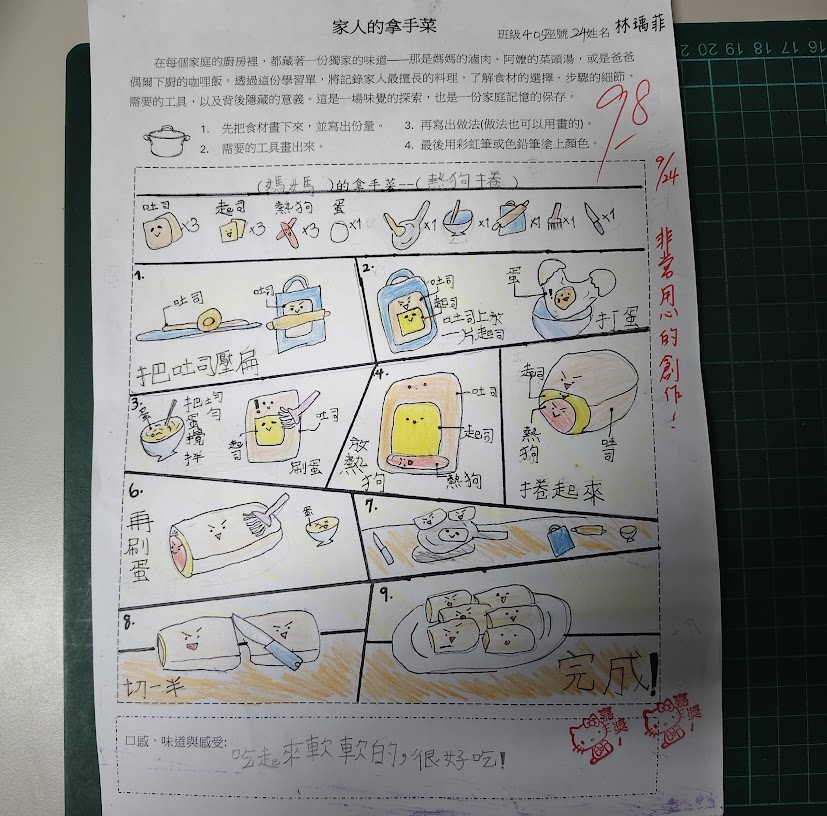 家人的拿手菜
班級405座號24姓名 林瑀菲
在每個家庭的廚房裡，都藏著一份獨家的味道——那是媽媽的滷肉、阿嬤的菜頭湯，或是爸爸
偶爾下廚的咖哩飯。透過這份學習單，將記錄家人最擅長的料理，了解食材的選擇、步驟的細節、
需要的工具，以及背後隱藏的意義。這是一場味覺的探索，也是一份家庭記憶的保存。
1. 先把食材畫下來，並寫出份量。
2. 需要的工具畫出來。
3. 再寫出做法(做法也可以用畫的)。
4. 最後用彩虹筆或色鉛筆塗上顏色。
98
9/24
非常用心的創作！
(媽媽)的拿手菜--(熱狗捲)
吐司 x3
起司 x3
熱狗 x3
蛋 x1
x1
x1
x1
x1
x1
1.
吐司
吐司
把吐司壓扁
2.
吐司
起司
吐司上放
一片起司
蛋
打蛋
3.
蛋
把
蛋
攪
拌
勻
起司
吐司
刷蛋
4.
吐司
起司
熱狗
放
熱
狗
起司
熱狗
吐司
捲起來
6.
再刷蛋
蛋
7.
8.
切一半
9.
完成!
口感、味道與感受:
吃起來軟軟的,很好吃!
嘉獎!
嘉獎!
20 19 18 17 16